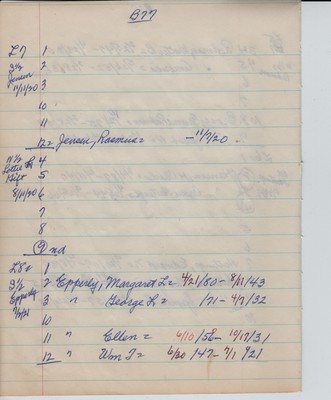 B77
L7 1
3 1/2 2
Jensen
11/11/20 3
10
11
12 = Jensen, Rasmus = -11/7/20.
4
Lottie
5
8/11/20 6
7
8
9 nd
L8 = 1
3 1/2 2 Epperly, Margaret L = 4/21/80 - 8/11/43
Epperly 3 " George L = /71 - 4/9/32
7/2/21
10
11 " Ellen = 6/10/58 - 10/17/31
12 " Wm T = 6/20/47 - 7/1/21